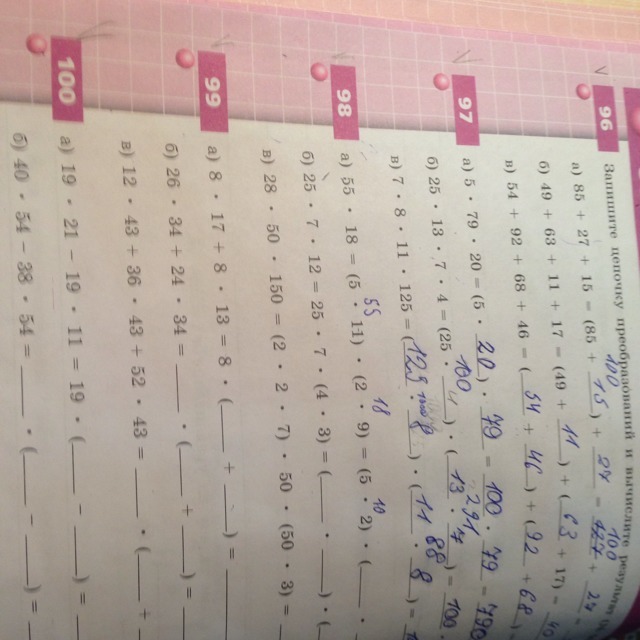 96 Запишите цепочку преобразований и вычислите
100 100
а) 85 + 27 + 15 = (85 + 15) + 27 = + 27 =
б) 49 + 63 + 11 + 17 = (49 + 11) + (63 + 17) =
в) 54 + 92 + 68 + 46 = (54 + 46) + (92 + 68)
97 а) 5 · 79 · 20 = (5 · 20) · 79 = 100 · 79 =
100
б) 25 · 13 · 7 · 4 = (25 · 4) · (13 · 7) = 100
в) 7 · 8 · 11 · 125 = (125 · 8) · (11 · 8) =
55 18 10
98 а) 55 · 18 = (5 · 11) · (2 · 9) = (5 · 2) · (
б) 25 · 7 · 12 = 25 · 7 · (4 · 3) = ( · ) · (
в) 28 · 50 · 150 = (2 · 2 · 7) · 50 · (50 · 3) =
99 а) 8 · 17 + 8 · 13 = 8 · ( + ) =
б) 26 · 34 + 24 · 34 = · ( + ) =
в) 12 · 43 + 36 · 43 + 52 · 43 = · ( +
100 а) 19 · 21 − 19 · 11 = 19 · ( − ) =
б) 40 · 54 − 38 · 54 = · ( − ) =